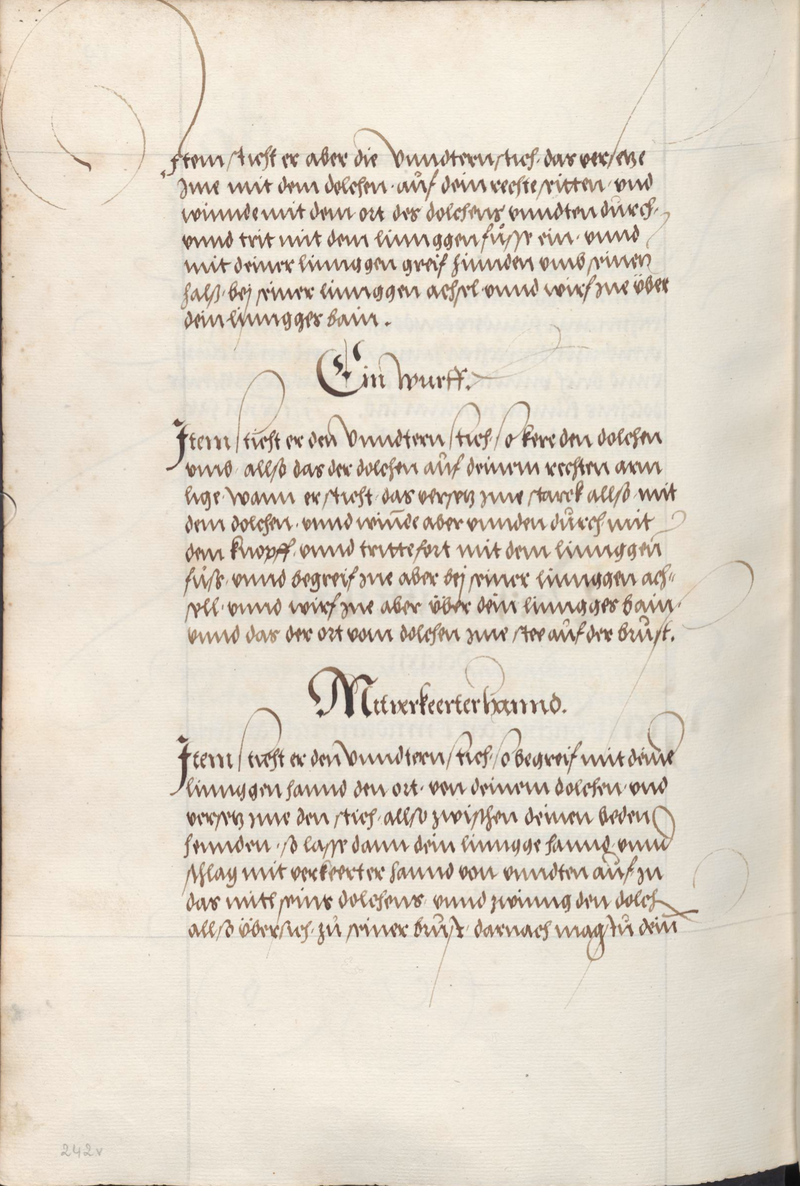 Item sticht er aber die Vnndtern stich· das verseze
jme mit dem dolchen· auf dein rechte sitten· vnd
winnde mit dem ort des dolchens vnndten durch·
vnnd trit mit dem linnggen füsse ein· vnnd
mit deiner linnggen greif hinnden vmb seinen
halß· bej seiner linnggen achsel· vnnd wirf jne über
dein linngges bain.
Ein Wurff.
Item sticht er den Vnndtern stich· so kere den dolchen
vmb· allso das der dolchen auf deinem rechten arm
lige· Wann er sticht· das versez jme starck allso· mit
dem dolchen· vnnd winde aber vnnden durch mit
dem knopff· vnnd tritte fort mit dem linnggen
füss· vnnd begreif jne aber bej seiner linnggen ach=
sell· vnnd wirf jne aber über dein linngges bain·
vnnd das der ort vom dolchen jme stee auf der brust.
Mit verkeerter hannd.
Item sticht er den Vnndtern stich· so begreif mit deine
linnggen hannd den ort· von deinem dolchen· vnd
versez jme den stich· allso zwischen deinen beden
hennden· so lasse dann dein linngge hannd· vnnd
schlag mit verkeerter hannd von vnndten auf jn
das mitl seins dolchens· vnnd zwinng den dolch
allso übersich· zu seiner brust· darnach magstu dein
242v